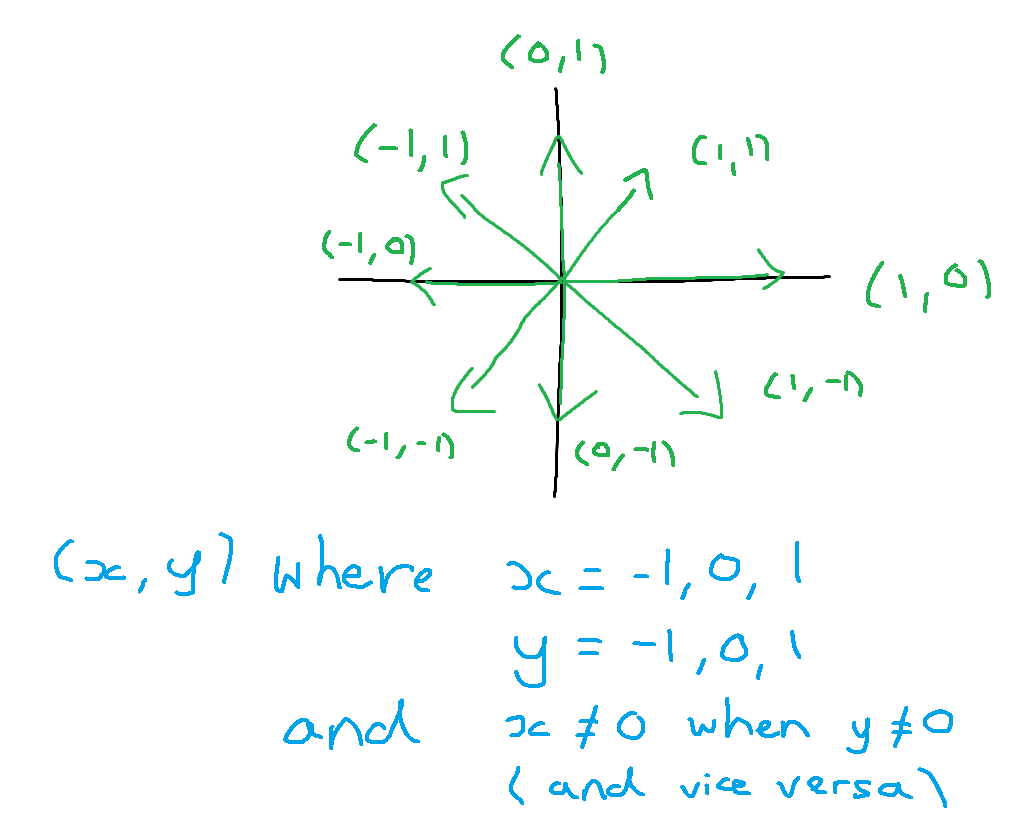 (0,1)
(-1,1)
(1,1)
(-1,0)
(1,0)
(1,-1)
(-1,-1)
(0,-1)
(x,y) where x = -1,0,1
y = -1,0,1
and x ≠ 0 when y ≠ 0
(and vice versa)